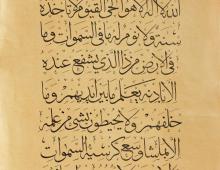 الله لا اله الا هو الحى القيوم لا تاخذه
سنة ولا نوم له ما فى السموات وما
فى الارض من ذا الذى يشفع عنده
الا باذنه يعلم ما بين ايديهم وما
خلفهم ولا يحيطون بشىء من علمه
الا بما شاء وسع كرسيه السموات